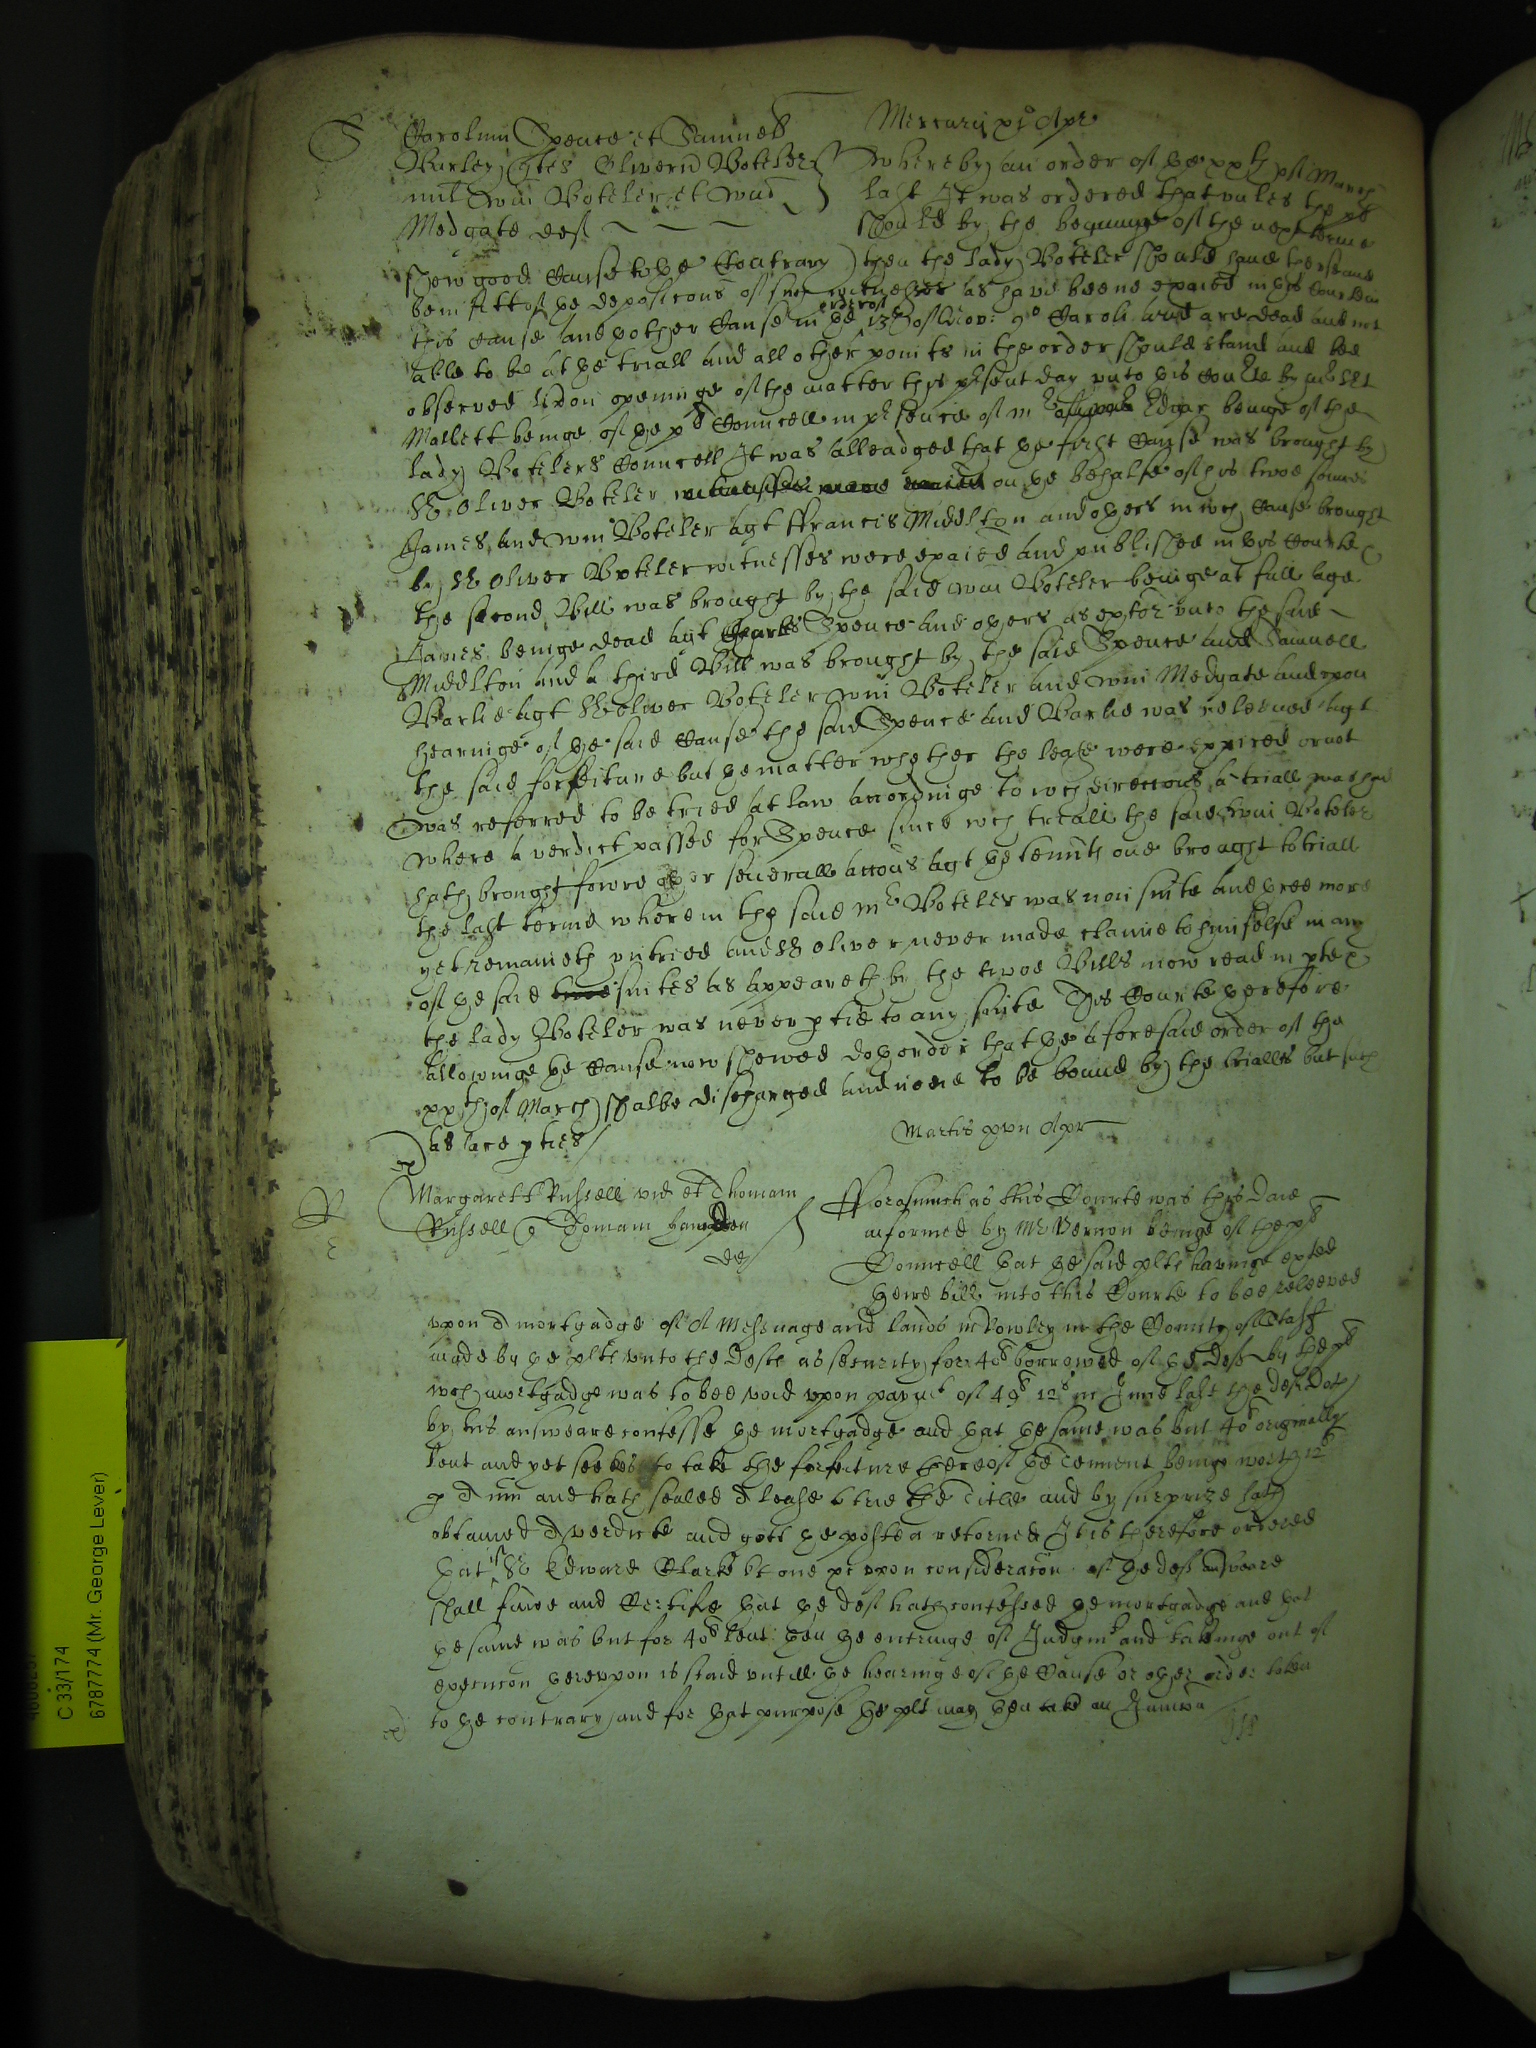 S
Mercurij xi° Apr
Carolum Spence et Samuel
Barley Quer Oliveru Boteler
mil Wm Boteler et Wm
Medgate def
Whereby an order of ye xxth of March
last It was ordered that unles the pl
should by the begininge of the next terme
shew good Cause to ye Contrary then the lady Boteler should have
benifitt of ye deposicons of such witnesses as have beene exaied in this Courte in
this cause and other Cause in ye order of 13th of Nov: 9° Caroli and are dead and not
able to be at ye triall and all other points in the order should stand and bee
observed Upon openinge of the matter this psent day unto this Courte by Mr
Mallett beinge of ye pl Councell in psence of Mr Edgar beinge of the
lady Botelers Councell It was alleadged that ye first Cause was brought by
Sr Oliver Boteler on ye behalfe of his twoe sonnes
James and Wm Boteler agt ffrancis Middlton and others in wch Cause brought
by Sr Oliver Boteler witnesses were exaied and published in this Courte
the second Bill was brought by the said Wm Boteler beinge at full age
James beinge dead agt Charles Spence and others as exr unto the said
Middlton and a third Bill was brought by the said Spence and Samuell
Barlie agt Sr Oliver Boteler Wm Boteler and Wm Medgate and upon
hearinge of ye said Cause the said Spence and Barlie was releeved agt
the said forfeiture but ye matter whether the lease were expired or not
was referred to be tried at law accordinge to wch direccons a triall was had
where a verdict passed for Spence since wch triall the said Wm Boteler
hath brought fowre other severall accons agt ye tennts one brought to triall
the last terme wherein the said Mr Boteler was non suite and three more
yet remaineth untried and Sr Oliver never made claime to himselfe in any
of ye said suites as appeareth by the twoe Bills now read in
the lady Boteler was never ptie to any suite This Courte therefore
allowinge ye Cause now shewed doth order that ye aforesaid order of the
xxth of March shalbe discharged and none to be bound by the trialls but such
as are pties
Martis xvii Apr
R
Margarett Russell vid et Thomam
Russell Thomam
def
Fforasmuch as this Courte was this daie
informed by Mr Vernon beinge of the pl
Councell that ye said plts havinge exhed
theire bill into this Courte to bee releeved
upon A mortgadge of A Messuage and lands in Rowley in the County of Staff
made by ye plts unto the Deft as security for 40l borrowed of ye Deft by the pl
wch mortgadge was to bee void upon paymt of 49l 12s in June last the deft Doth
by his answeare confesse ye mortgadge and that ye same was but 40l originally
lent and yet seekes to take the forfeiture thereof ye Tenement beinge worth 12l
p Ann and hath sealed A lease to trie the Title and by surprize hath
obtained A verdicte and gott ye postea retorned It is therefore ordered
that if Sr Edward Clarke kt one &c upon consideracon of ye deft answeare
shall finde and Certifie that ye deft hath confessed ye mortgadge and that
ye same was but for 40l lent then ye entringe of Judgmt and takinge out of
execucon thereupon is staid untill ye hearinge of ye Cause or other order taken
to ye contrary and for that purpose ye plt may then take an Junccon